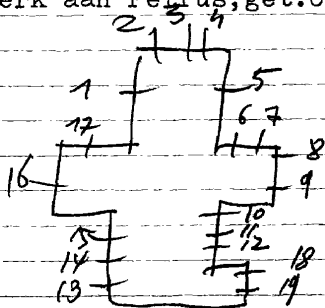 erk aan Petrus,get.
2 3 4
1 5
17 6 7
16 8
9
10
15 11
14 12
13 18
19